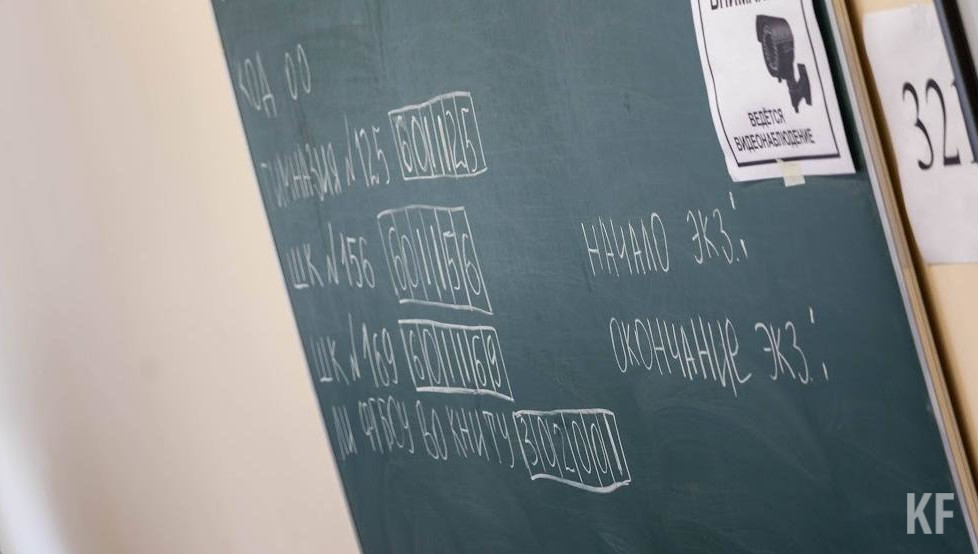 КОД ОО
ГИМНАЗИЯ №125 601125
ШК №156 601156
ШК №169 601169
ЛИ ФГБОУ ВО КНИТУ 302001
НАЧАЛО ЭКЗ.:
ОКОНЧАНИЕ ЭКЗ.:
ВНИМАНИЕ
ВЕДЁТСЯ
ВИДЕОНАБЛЮДЕНИЕ
321
KF